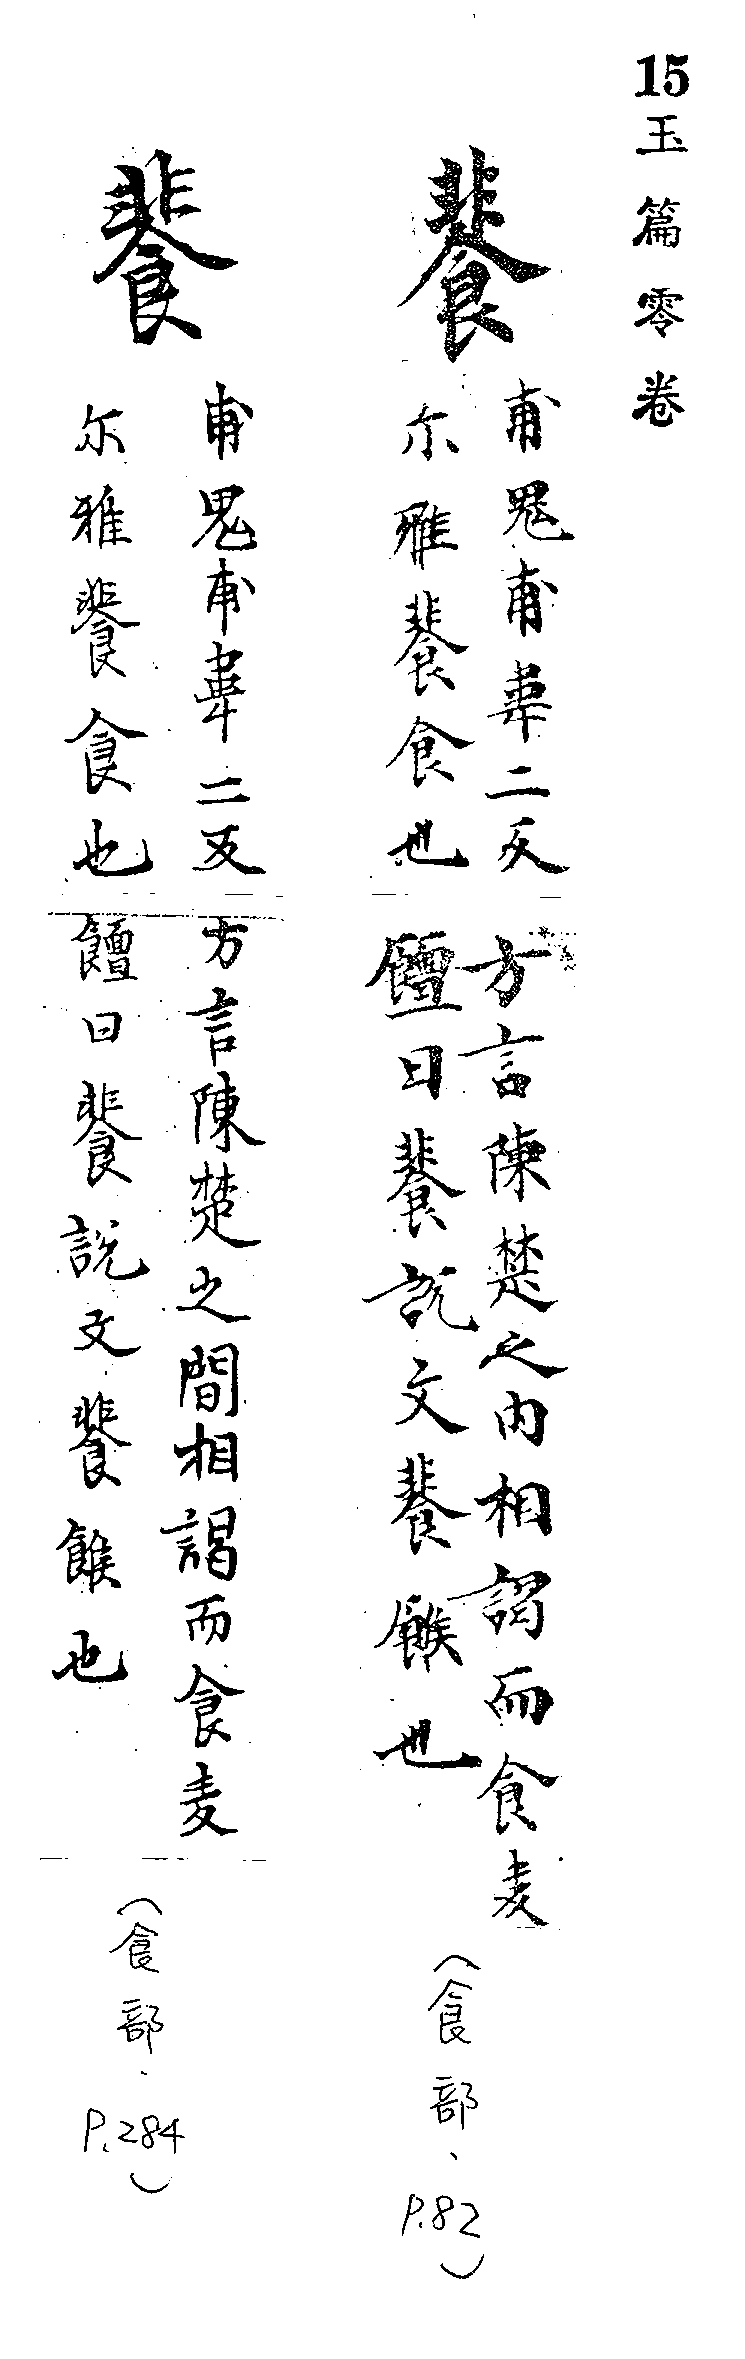 15 玉篇零卷
餥
甫鬼甫韋二反
尓雅餥食也
方言陳楚之内相謁而食麦
饘曰餥說文餥餱也
(食部、P.82)
餥
甫鬼甫韋二反
尓雅餥食也
方言陳楚之間相謁而食麦
饘曰餥說文餥餱也
(食部、P.284)